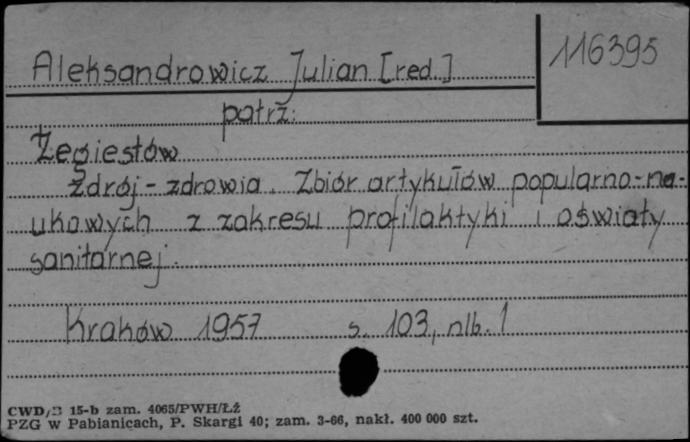 116395
Aleksandrowicz Julian [red.]
patrz:
Żegiestów
Zdrój - zdrowia. Zbiór artykułów popularno-na-
ukowych z zakresu profilaktyki i oświaty
sanitarnej.
Kraków 1957 s. 103, nlb. 1
CWD/B 15-b zam. 4065/PWH/ŁŻ
PZG w Pabianicach, P. Skargi 40; zam. 3-66, nakł. 400 000 szt.